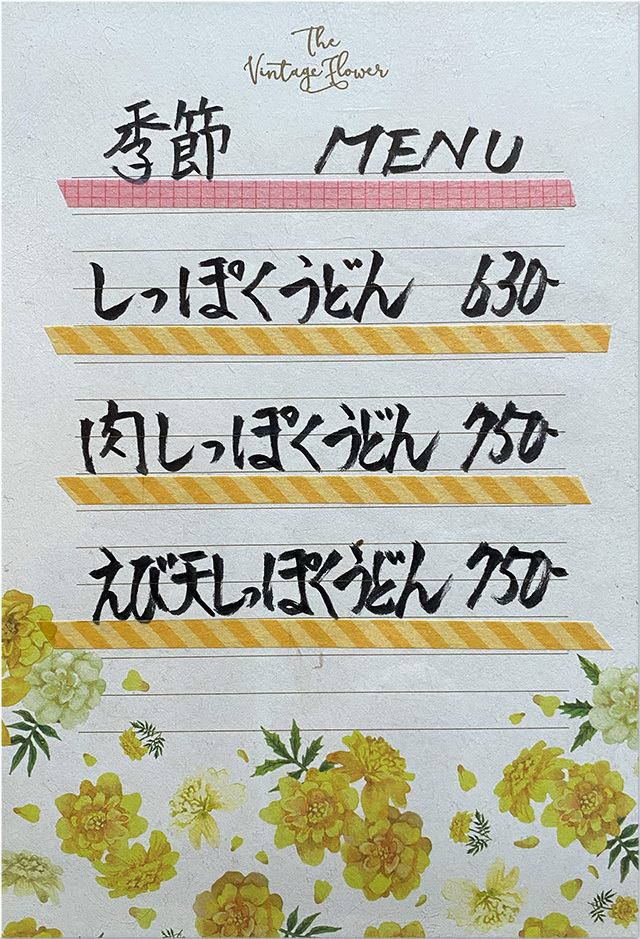 The
Vintage Flower
季節 MENU
しっぽくうどん 630-
肉しっぽくうどん 750-
えび天しっぽくうどん 750-